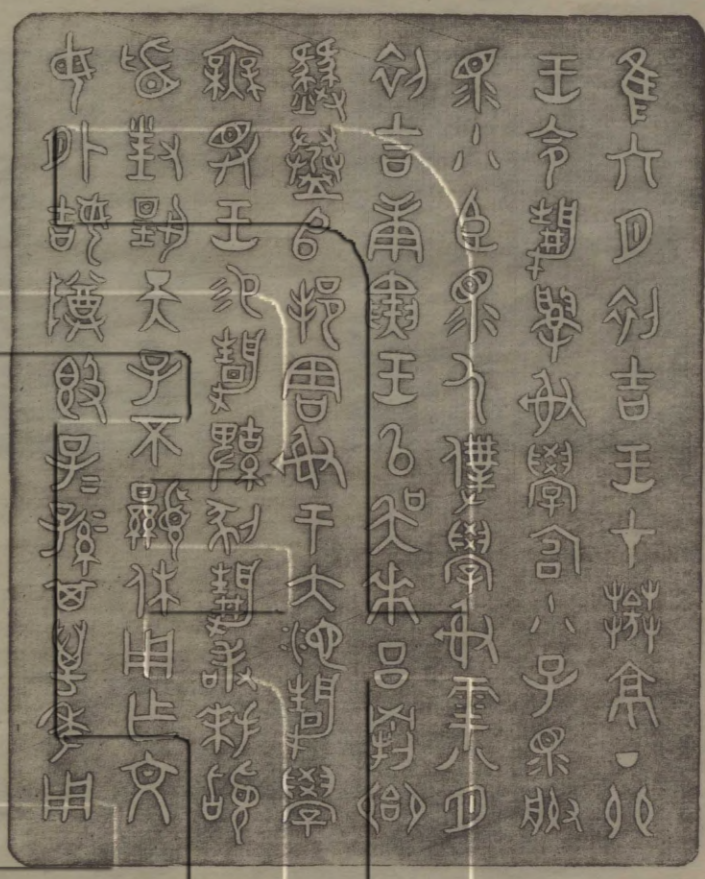 隹六月初吉王才𦺇京丁卯
王令靜𤔲射學宮小子眔服
眔小臣眔尸僕學射雩八月
初吉庚寅王以吳𠦪呂㓻卿
𢿢𥂴𠂤邦周射于大池靜學
無斁王易靜鞞剢靜敢拜𩒨
首對揚天子不顯休用乍文
母外姞尊簋子=孫=其萬年用